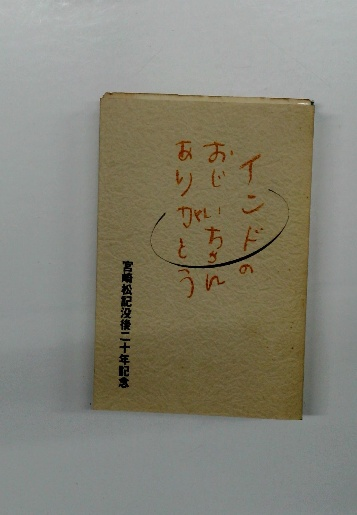 インドの
おじいちゃん
ありがとう
宮崎松記没後二十年記念